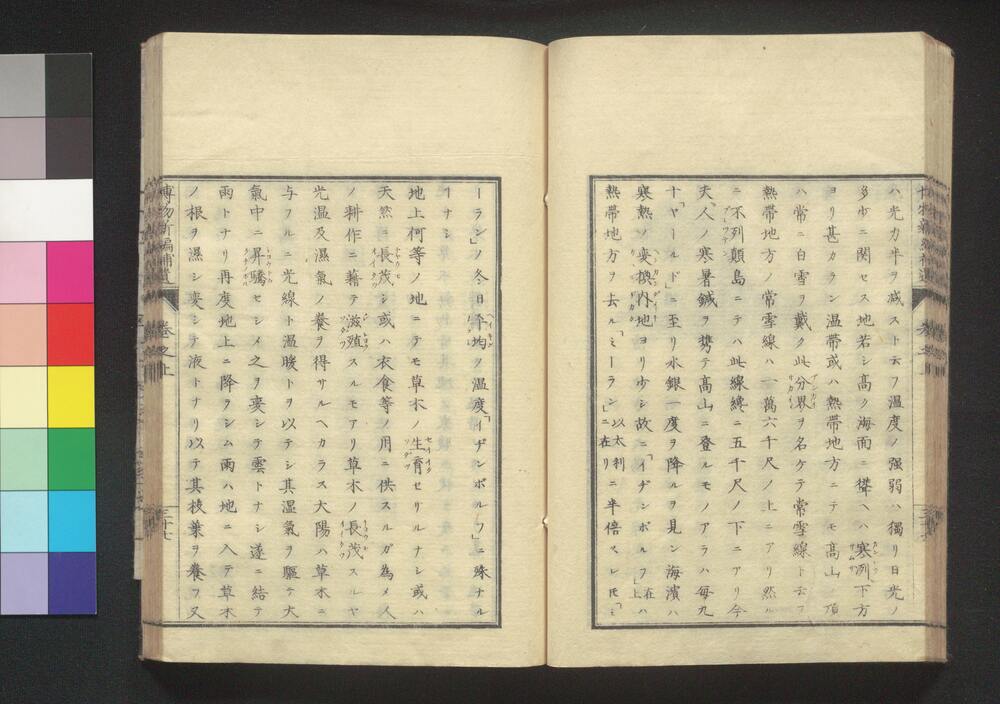 ハ光力半ヲ减スト云フ溫度ノ强弱ハ獨リ日光ノ
多少ニ関セス地若シ高ク海面ニ聳ヘハ寒列下方
ヨリ甚カラン温帯或ハ熱帯地方ニテモ高山ノ頂
ハ常ニ白雪ヲ戴ク此分界ヲ名ケテ常雪線ト云フ
熱帯地方ノ常雪線ハ一萬六千尺ノ上ニアリ然ル
ニ不列顛島ニテハ此線纔ニ五千尺ノ下ニアリ今
夫人ノ寒暑鍼ヲ携テ高山ニ登ルモノアラハ毎九
十「ヤールド」ニ至リ水銀一度ヲ降ルヲ見ン海濱ハ
寒熱ノ変換内地ヨリ少シ故ニ「イヂンボルフ」在上ハ
熱帯地方ヲ去ル「ミーラン」以太利ニ在リニ半倍スレ𪜈「ミ
ーラン」ノ冬日平均ノ温度「イヂンボルフ」ニ殊ナル
ヿナシ
地上何等ノ地ニテモ草木ノ生育セサルナシ或ハ
天然ニ長茂シ或ハ衣食等ノ用ニ供スルガ為メ人
ノ耕作ニ藉テ滋殖スルモアリ草木ノ長茂スルヤ
光温及濕氣ノ養ヲ得サルヘカラス大陽ハ草木ニ
与フルニ光線ト温暖トヲ以テシ其濕氣ヲ驅テ大
氣中ニ昇騰セシメ之ヲ変シテ雲トナシ遂ニ結テ
雨トナリ再度地上ニ降ラシム雨ハ地ニ入テ草木
ノ根ヲ濕シ変シテ液トナリ以テ其枝葉ヲ養フ又
博物新編補遺 卷之上